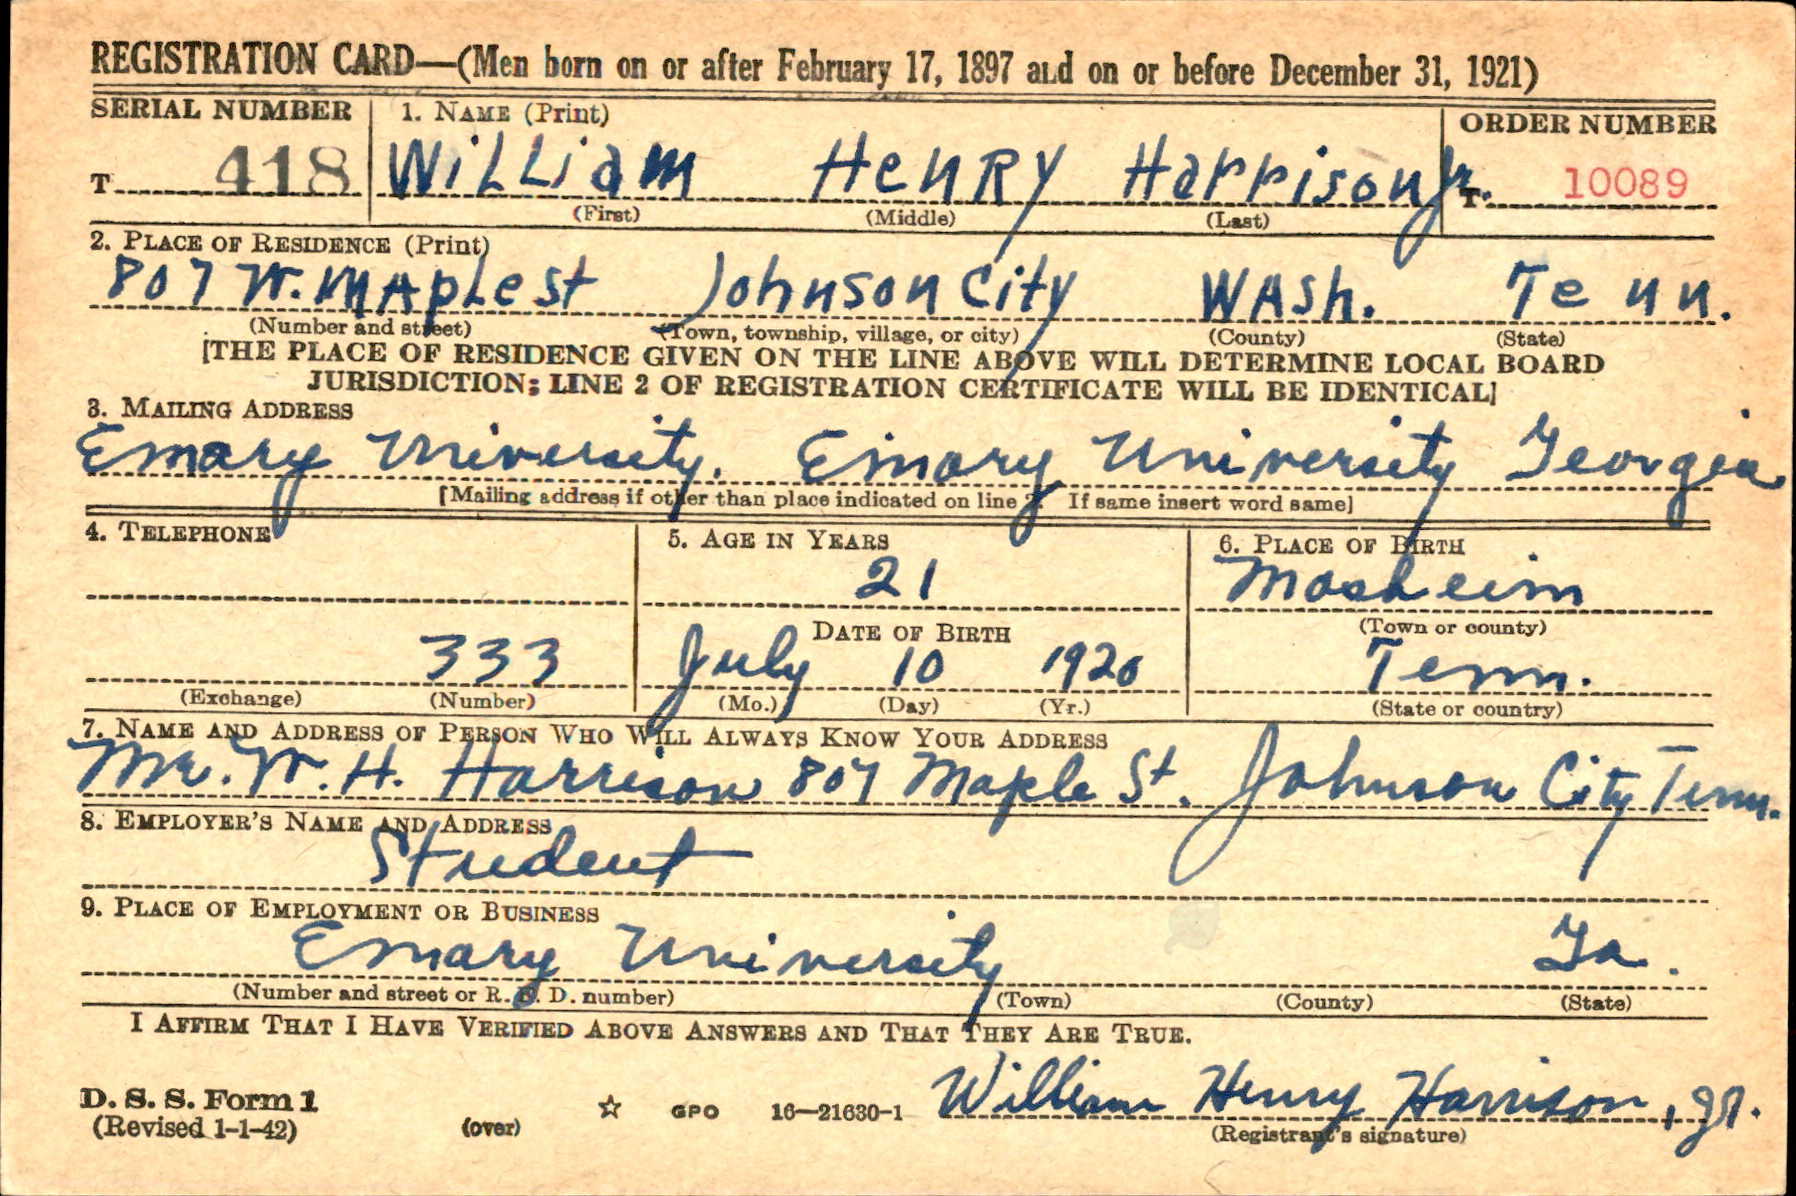 REGISTRATION CARD—(Men born on or after February 17, 1897 and on or before December 31, 1921)
SERIAL NUMBER 1. NAME (Print) ORDER NUMBER
T 418 William Henry Harrison Jr. T 10089
(First) (Middle) (Last)
2. PLACE OF RESIDENCE (Print)
807 W. Maple St Johnson City Wash. Tenn.
(Number and street) (Town, township, village, or city) (County) (State)
[THE PLACE OF RESIDENCE GIVEN ON THE LINE ABOVE WILL DETERMINE LOCAL BOARD
JURISDICTION; LINE 2 OF REGISTRATION CERTIFICATE WILL BE IDENTICAL]
3. MAILING ADDRESS
Emory University. Emory University Georgia
[Mailing address if other than place indicated on line 2. If same insert word same]
4. TELEPHONE 5. AGE IN YEARS 6. PLACE OF BIRTH
21 Mosheim
DATE OF BIRTH (Town or county)
333 July 10 1920 Tenn.
(Exchange) (Number) (Mo.) (Day) (Yr.) (State or country)
7. NAME AND ADDRESS OF PERSON WHO WILL ALWAYS KNOW YOUR ADDRESS
Mr. W. H. Harrison 807 Maple St. Johnson City Tenn.
8. EMPLOYER'S NAME AND ADDRESS
Student
9. PLACE OF EMPLOYMENT OR BUSINESS
Emory University Ga.
(Number and street or R. F. D. number) (Town) (County) (State)
I AFFIRM THAT I HAVE VERIFIED ABOVE ANSWERS AND THAT THEY ARE TRUE.
D. S. S. Form 1
(Revised 1-1-42) (over) ☆ GPO 16—21630-1 William Henry Harrison, Jr.
(Registrant's signature)